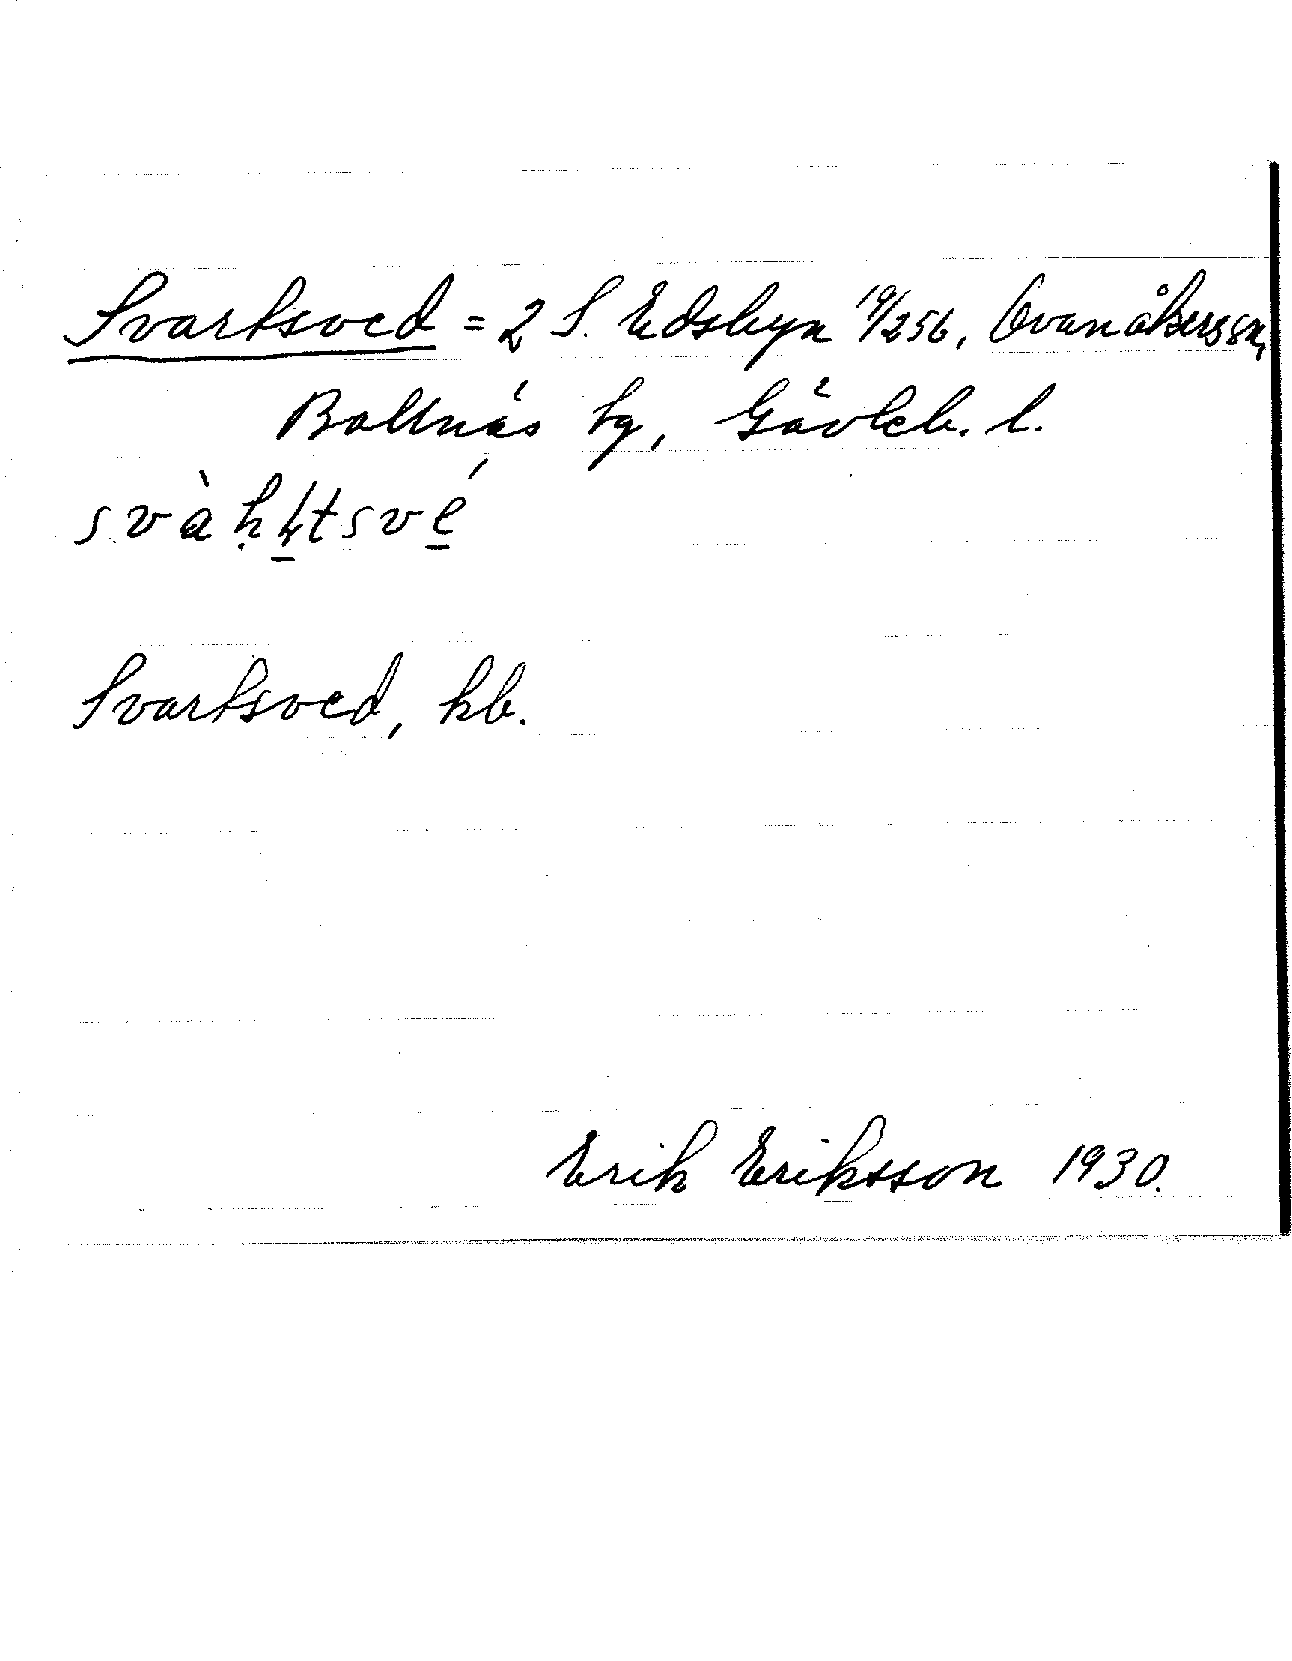 Svartsved = 2 S. Edsbyn 19/256, Ovanåkers sn,
Bollnäs tg, Gävleb. l.
Svartsved, hb.
Erik Eriksson 1930.